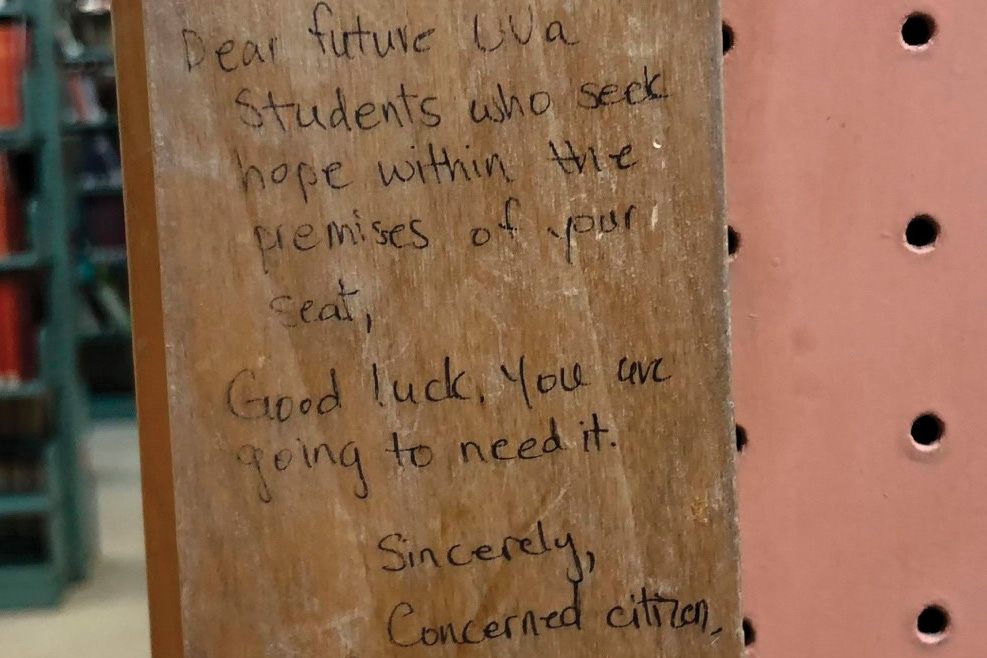 Dear future UVa
Students who seek
hope within the
premises of your
seat,
Good luck. You are
going to need it.
Sincerely,
Concerned citizen,